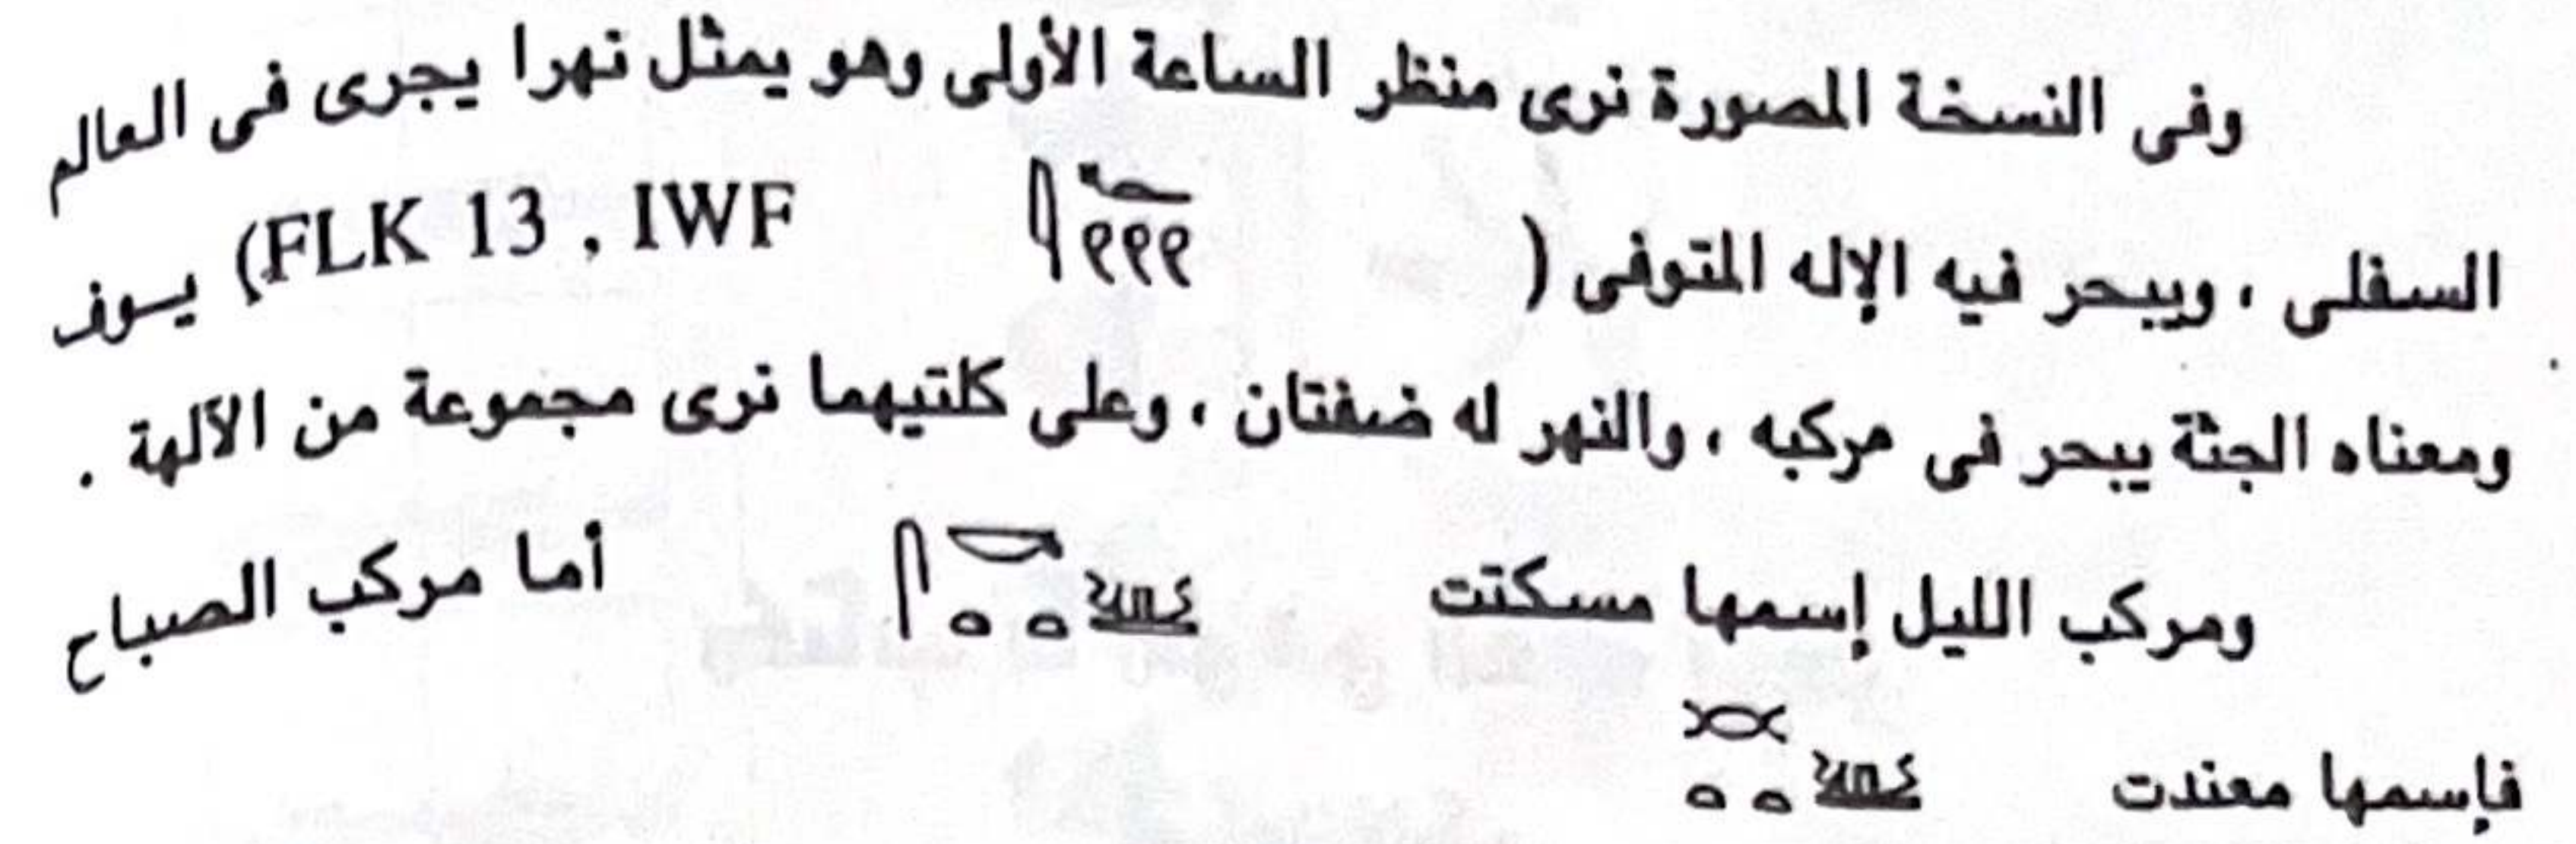 وفى النسخة المصورة نرى منظر الساعة الأولى وهو يمثل نهرا يجرى فى العالم
السفلى ، ويبحر فيه الإله المتوفى ( FLK 13 , IWF) يـوف
ومعناه الجثة يبحر فى مركبه ، والنهر له ضفتان ، وعلى كلتيهما نرى مجموعة من الآلهة .
ومركب الليل إسمها مسكتت أما مركب الصباح
فإسمها معندت